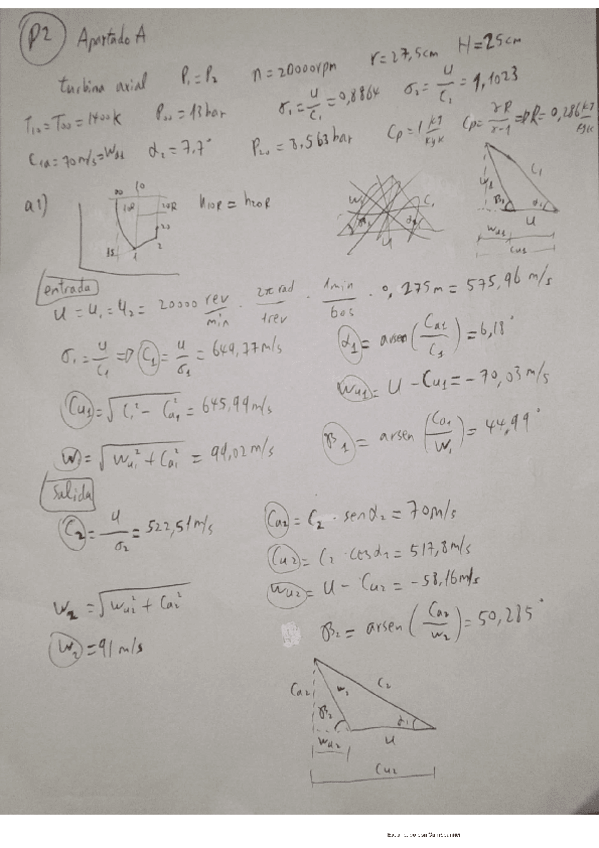 P2 Apartado A
turbina axial P₁=P₂ n=20000rpm r=27,5cm H=25cm
T₁₀=T₀₀=1400K P₀₀=13bar σ₁=u/C₁=0,8864 σ₂=u/C₂=1,1023
C₁ₐ=70m/s=W₁₁ α₂=7.7° P₂₀=3,563bar Cp=1 kJ/kgK Cp=γR/γ-1 => R=0,286 kJ/kgK
a1) 00 10 10R 20R 20 1s 1 2 h10R=h20R
W C₁ u
W₁ C₁ β₁ α₁ u Wu₁ Cu₁
entrada
u=u₁=u₂=20000 rev/min · 2π rad/1rev · 1min/60s · 0,275m=575,96 m/s
σ₁=u/C₁ => C₁=u/σ₁=649,77m/s α₁=arsen(Ca₁/C₁)=6,18°
Cu₁=√C₁²-Ca₁²=645,99m/s Wu₁=u-Cu₁=-70,03m/s
W₁=√Wu₁²+Ca₁²=99,02m/s β₁=arsen(Ca₁/W₁)=44,99°
salida
C₂=u/σ₂=522,51m/s Ca₂=C₂·senα₂=70m/s
Cu₂=C₂·cosα₂=517,8m/s
W₂=√Wu₂²+Ca₂² Wu₂=u-Cu₂=-58,16m/s
W₂=91m/s β₂=arsen(Ca₂/W₂)=50,285°
Ca₂ W₂ C₂
β₂ α₂
Wu₂ u
Cu₂